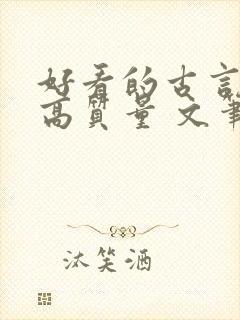 好看的古言
高质量 文笔
沐笑酒